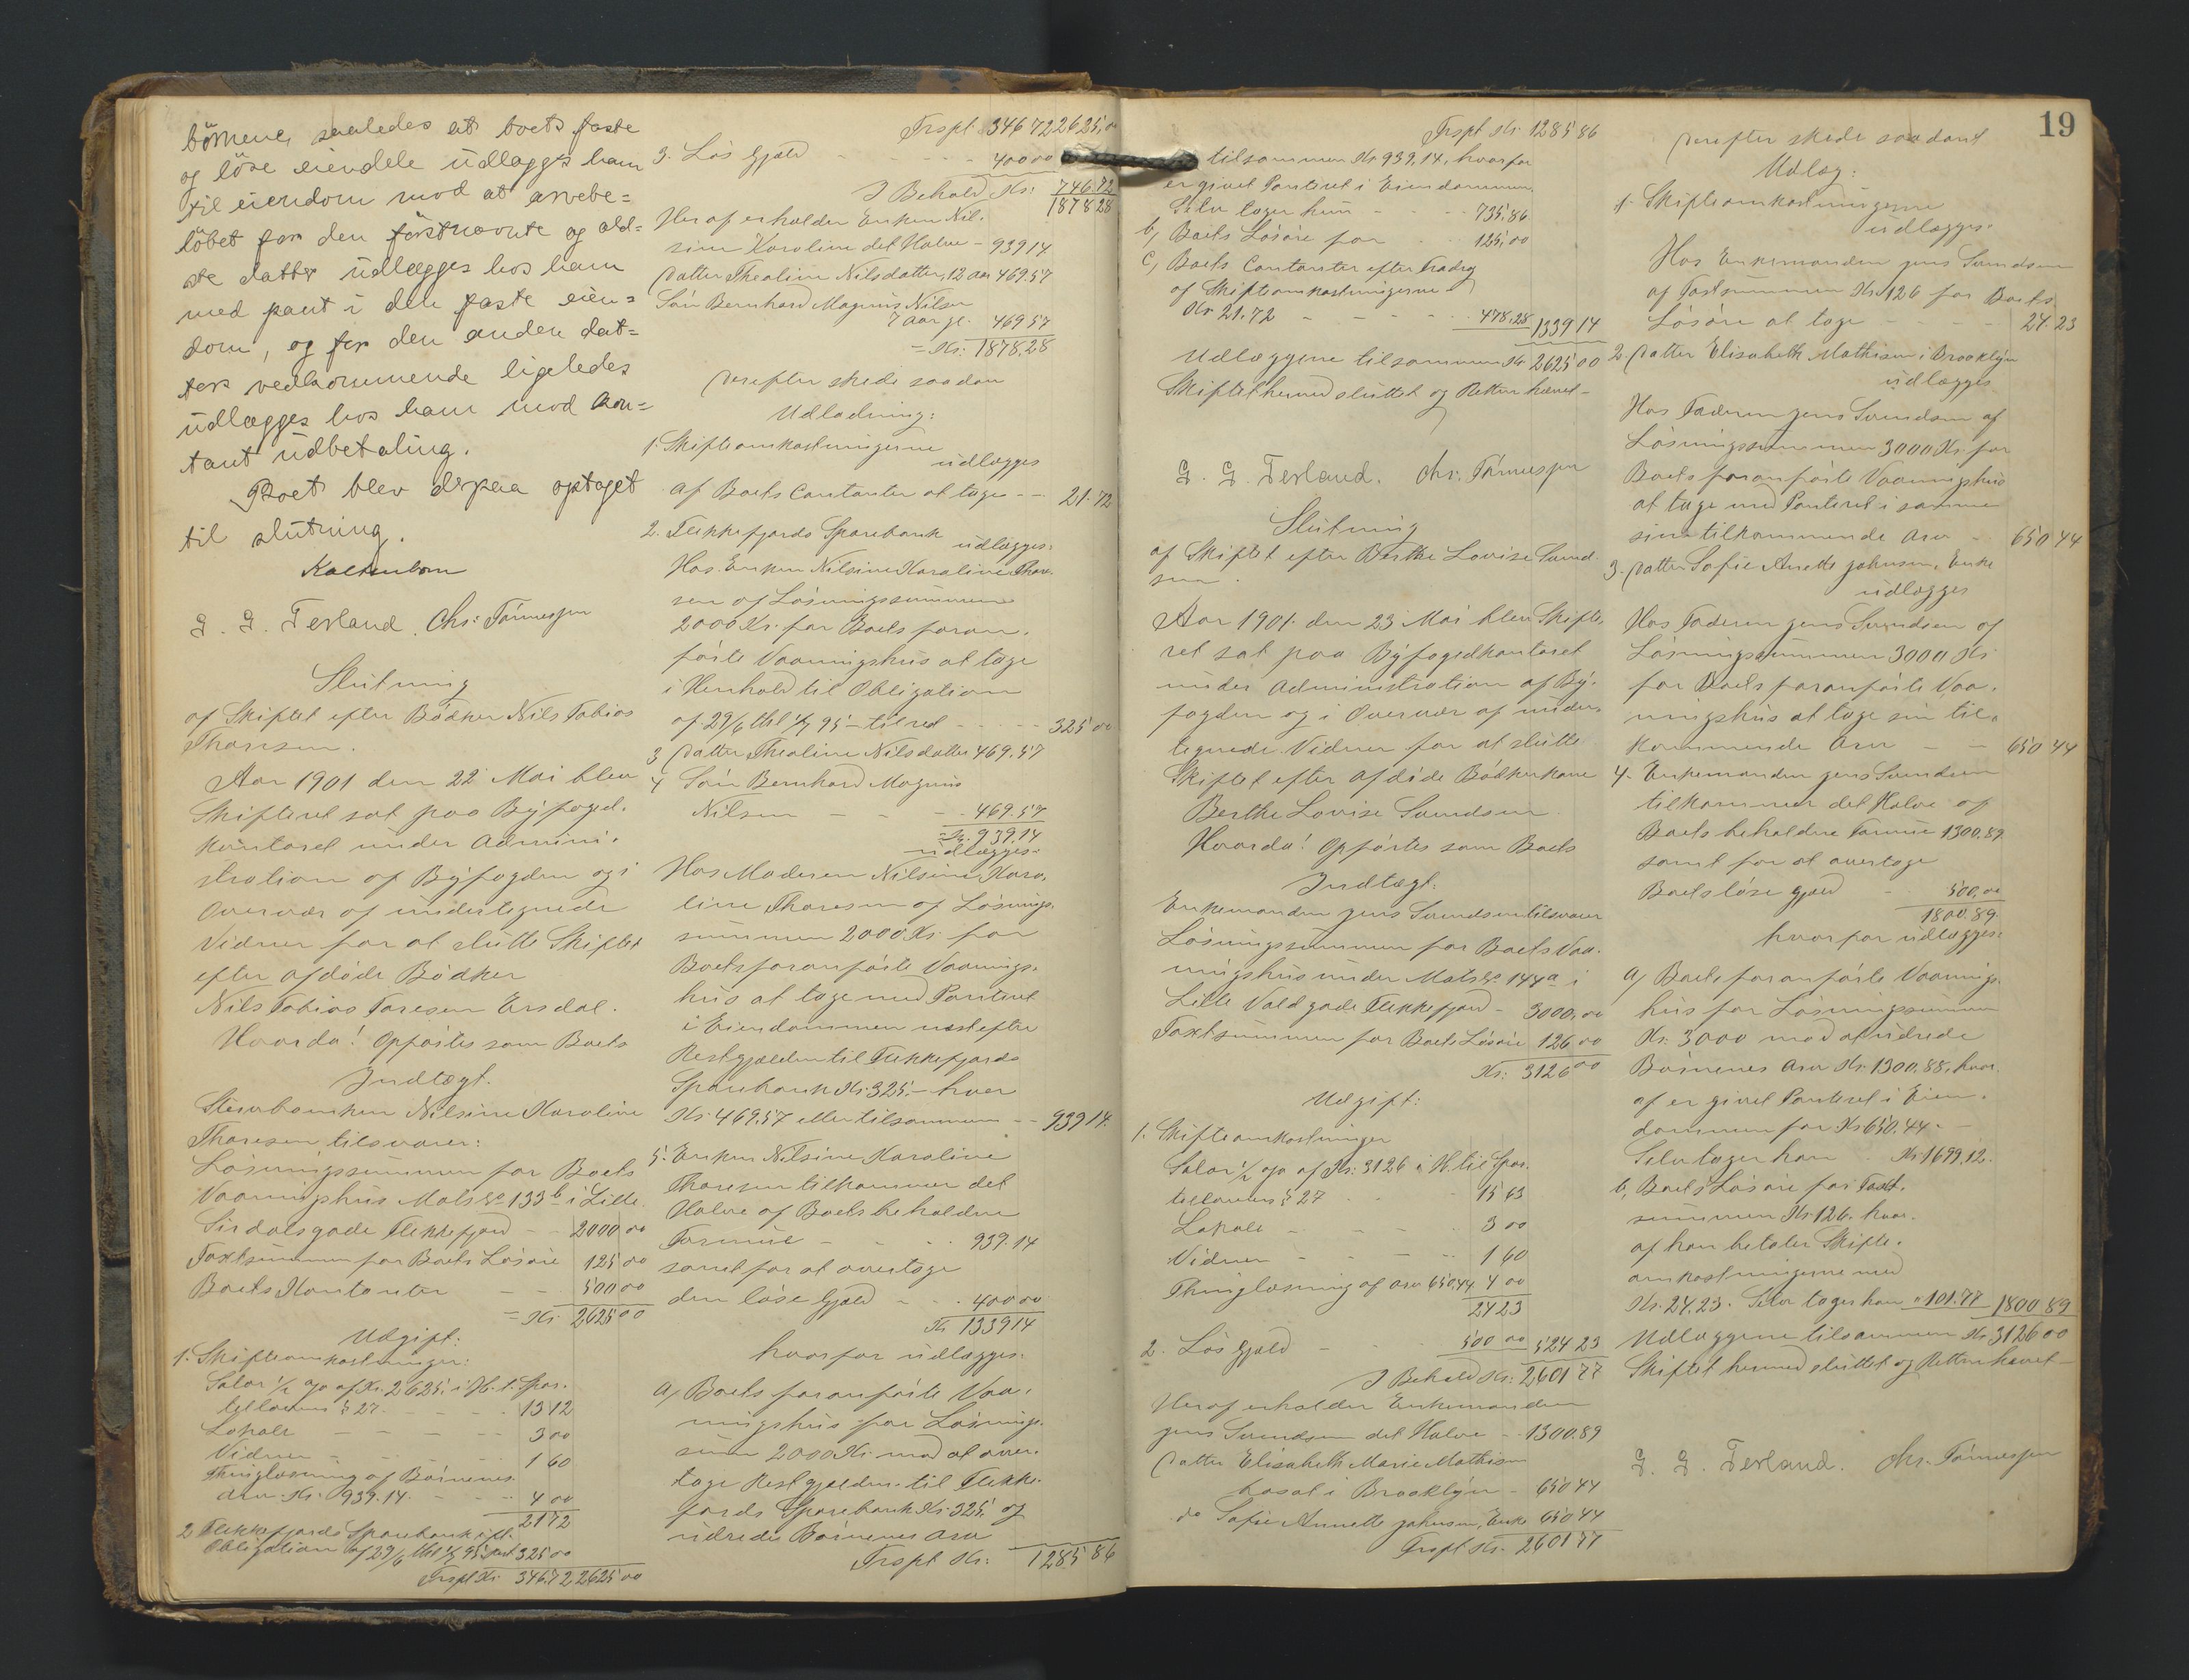 börnene, saaledes at boets faste
og löse eiendele udlægges ham
til eiendom mod at arvebe=
löbet for den förstnævnte og æld=
ste datter udlægges hos ham
med pant i den faste eien=
dom, og for den anden dat=
ters vedkommende ligeledes
udlægges hos ham mod kon=
tant udbetaling.
Boet blev derpaa optaget
til slutning.
Kaltenborn
G. G. Tesland. Chr. Tönnessen
Slutning
af Skiftet efter Bödker Nils Tobias
Thoresen.
Aar 1901 den 22 Mai blev
Skifteret sat paa Byfoged-
kontoret under Admini-
stration af Byfogden og i
Overvær af undertegnede
Vidner for at slutte Skiftet
efter afdöde Bödker
Nils Tobias Toresen Ersdal.
Hvorda! Opförtes som Boets
Indtægt.
Stervboenken Nilsine Karoline
Thoresen tilsvarer:
Lösningssummen for Boets
Vaaningshus Mats No 133b i Lille
Sirdalsgade Flekkefjord - - 2000 00
Taxtsummen for Boets Lösöre 125 00
Boets Kontanter - - 500 00
= Kr. 2625 00
Udgift:
1. Skifteomkostninger:
Salær ½ % af Kr. 2625, i H. t. Spor-
tellovens § 27 - - - 13 12
Lokale - - - - 3 00
Vidner - - - - 1 60
Thinglæsning af Börnenes
Arv Kr. 939.14 - - - 4 00
21 72
2 Flekkefjords Sparebank ifl.
Obligation af 29/6 thl 1/7 95, rest 325 00
Trspt Kr. 346.72 2625 00
Trspt. 346 72 2625,00
3. Lös Gjæld - - - - 400 00
746.72
I Behold Kr: 1878 28
Heraf erholder Enken Nil-
sine Karoline det Halve - 939 14
Datter Thealine Nilsdatter, 12 aar 469.57
Sön Bernhard Magnus Nilsen
7 aar gl. 469 57
= Kr: 1878.28
Derefter skede saadan
Udlodning:
1. Skifteomkostningerne
udlægges
af Boets Contanter at tage - - 21.72
2. Flekkefjords Sparebank
udlægges:
Hos Enken Nilsine Karoline Thore-
sen af Lösningssummen
2000 Kr. for Boets foran-
förte Vaaningshus at tage
i Henhold til Obligation
af 29/6 thl 1/7 95 - til red - - - 325 00
3 Datter Thealine Nilsdatter 469.57
4 Sön Bernhard Magnus
Nilsen - - - 469.57
= Kr. 939.14
udlægges:
Hos Moderen Nilsine Karo-
line Thoresen af Lösnings-
summen 2000 Kr. for
Boets foranförte Vaanings-
hus at tage med Panteret
i Eiendommen næstefter
Restgjælden til Flekkefjords
Sparebank Kr. 325,- hver
Kr. 469.57 eller tilsammen - - 939 14.
5. Enken Nilsine Karoline
Thoresen tilkommer det
Halve af Boets beholdne
Formue - - - . 939.14
samt for at overtage
den löse Gjæld - - . 400 00
Kr 1339 14
hvorfor udlægges.
a, Boets foranförte Vaa-
ningshus for Lösnings-
sum 2000 Kr. mod at over-
tage Restgjælden til Flekke-
fjords Sparebank Kr. 325 og
udrede Börnenes Arv
Trspt Kr: 1285 86
19
Trspt Kr. 1285 86
tilsammen Kr 939,14, hvorfor
er givet Panteret i Eiendommen.
Selv tager hun - - - 735.86
b, Boets Lösöre for - - 125,00
c, Boets Contanter efter Fradrag
af Skifteomkostningerne
Kr 21.72 - - - - 478.28 1339 14
Udlæggene tilsammen Kr 2625 00
Skiftet hermed sluttet og Retten hævet -
G. G. Tesland. Chr. Tönnessen
Slutning
af Skiftet efter Berthe Lovise Svend-
sen.
Aar 1901 den 23 Mai blev Skifte-
ret sat paa Byfogedkontoret
under Administration af By-
fogden og i Overvær af under-
tegnede Vidner for at slutte
Skiftet efter afdöde Bödkerkone
Berthe Lovise Svendsen.
Hvorda! Opförtes som Boets
Indtægt.
Enkemanden Jens Svendsen tilsvarer
Lösningssummen for Boets Vaa-
ningshus under Mats No 144a i
Lille Voldgade Flekkefjord - 3000,00
Taxtsummen for Boets Lösöre 126 00
Kr: 3126 00
Udgift:
1. Skifteomkostninger
Salær ½ % af Kr: 3126 i H. til Spor-
tellovens § 27 - - - 15 63
Lokale - - - - 3 00
Vidner - - - - 1 60
Thinglæsning af Arv 650.44 4 00
24 23
2. Lös Gjæld - - 500 00 524 23
I Behold Kr: 2601 77
Heraf erholder Enkemanden
Jens Svendsen det Halve - 1300.89
Datter Elisabeth Marie Mathisen
bosat i Brooklyn - 650 44
do Sofie Annette Johnsen, Enke 650 44
Trspt Kr. 2601 77
Derefter skede saadant
Udlæg:
1. Skifteomkostningerne
udlægges:
Hos Enkemanden Jens Svendsen
af Taxtsummen Kr. 126 for Boets
Lösöre at tage - - - 24.23
2. Datter Elisabeth Mathisen i Brooklyn
udlægges
Hos Faderen Jens Svendsen af
Lösningssummen 3000 Kr. for
Boets foranförte Vaaningshus
at tage med Panteret i samme
sin tilkommende Arv - 650 44
3. Datter Sofie Anette Johnsen, Enke
udlægges
Hos Faderen Jens Svendsen af
Lösningssummen 3000 Kr
for Boets foranförte Vaa-
ningshus at tage sin til-
kommende Arv - - 650 44
4. Enkemanden Jens Svendsen
tilkommer det Halve af
Boets beholdne Formue 1300.89
samt for at overtage
Boets löse Gjæld - - 500,00
1800.89
hvorfor udlægges:
a, Boets foranförte Vaanings-
hus for Lösningssummen
Kr. 3000 mod at udrede
Börnenes Arv Kr. 1300,88, hvor-
af er givet Panteret i Eien-
dommen for Kr 650.44 -
Selv tager han . Kr. 1699.12.
b, Boets Lösöre for Taxt-
summen Kr. 126, hvor-
af han betaler Skifte-
omkostningerne med
Kr. 24.23. Selv tager han " 101.77 1800 89
Udlæggene tilsammen Kr. 3126 00
Skiftet hermed sluttet og Retten hævet -
G. G. Tesland. Chr. Tönnessen